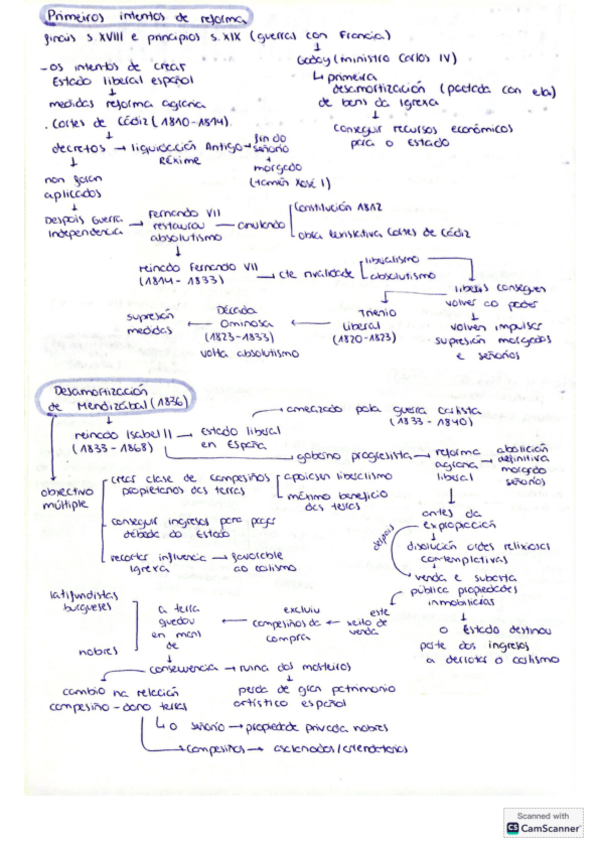 Primeiros intentos de reforma
finais s.XVIII e principios s.XIX (guerras con Francia)
Godoy (ministro Carlos IV)
- os intentos de crear
Estado liberal español
primeira
desamortización (pactada con ela)
de bens da Igrexa
medidas reforma agraria
. Cortes de Cádiz (1810-1814)
conseguir recursos económicos
para o Estado
decretos → liquidación Antigo
Réxime
fin do
señorio
morgado
(tamén Xosé I)
non foron
aplicados
Despois Guerra
Independencia
Fernando VII
restaurou
absolutismo
anulando
Constitución 1812
obra lexislativa Cortes de Cádiz
reinado Fernando VII
(1814-1833)
rivalidade
liberalismo
absolutismo
liberais conseguen
volver ao poder
volven impulsar
supresión morgados
e señorios
Trienio
Liberal
(1820-1823)
Década
Ominosa
(1823-1833)
volta absolutismo
supresión
medidas
Desamortización
de Mendizábal (1836)
ameazado pola guerra carlista
(1833-1840)
reinado Isabel II
(1833-1868)
Estado liberal
en España
goberno progresista → reforma
agraria
liberal
abolición
definitiva
morgado
señorios
obxectivo
múltiple
crear clase de campesiños
propietarios das terras
apoiasen liberalismo
máximo beneficio
das terras
conseguir ingresos para pagar
débeda do Estado
recortar influencia → favorable
Igrexa
ao carlismo
antes da
expropiación
despois
disolución ordes relixiosas
contemplativas
venda e subasta
pública propiedades
inmobiliarias
o Estado destinou
parte dos ingresos
a derrotar o carlismo
este
xeito de
venda
excluiu
campesiños da
compra
a terra
quedou
en mans
de
latifundistas
burgueses
nobres
consecuencia → ruina dos mosteiros
perda de gran patrimonio
artístico español
cambio na relación
campesiño - dono terras
o señorio → propiedade privada nobres
campesiños → asalariados/arrendatarios
Scanned with
CS CamScanner